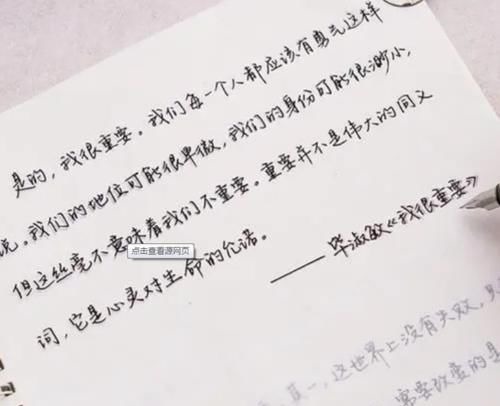 是的，我很重要。我们每一个人都应该有勇气这样
说。我们的地位可能很卑微，我们的身份可能很渺小，
但这丝毫不意味着我们不重要。重要并不是伟大的同义
词，它是心灵对生命的允诺。
——毕淑敏《我很重要》
点击查看源网页
一，这世界上没有失败，
需要改变的是